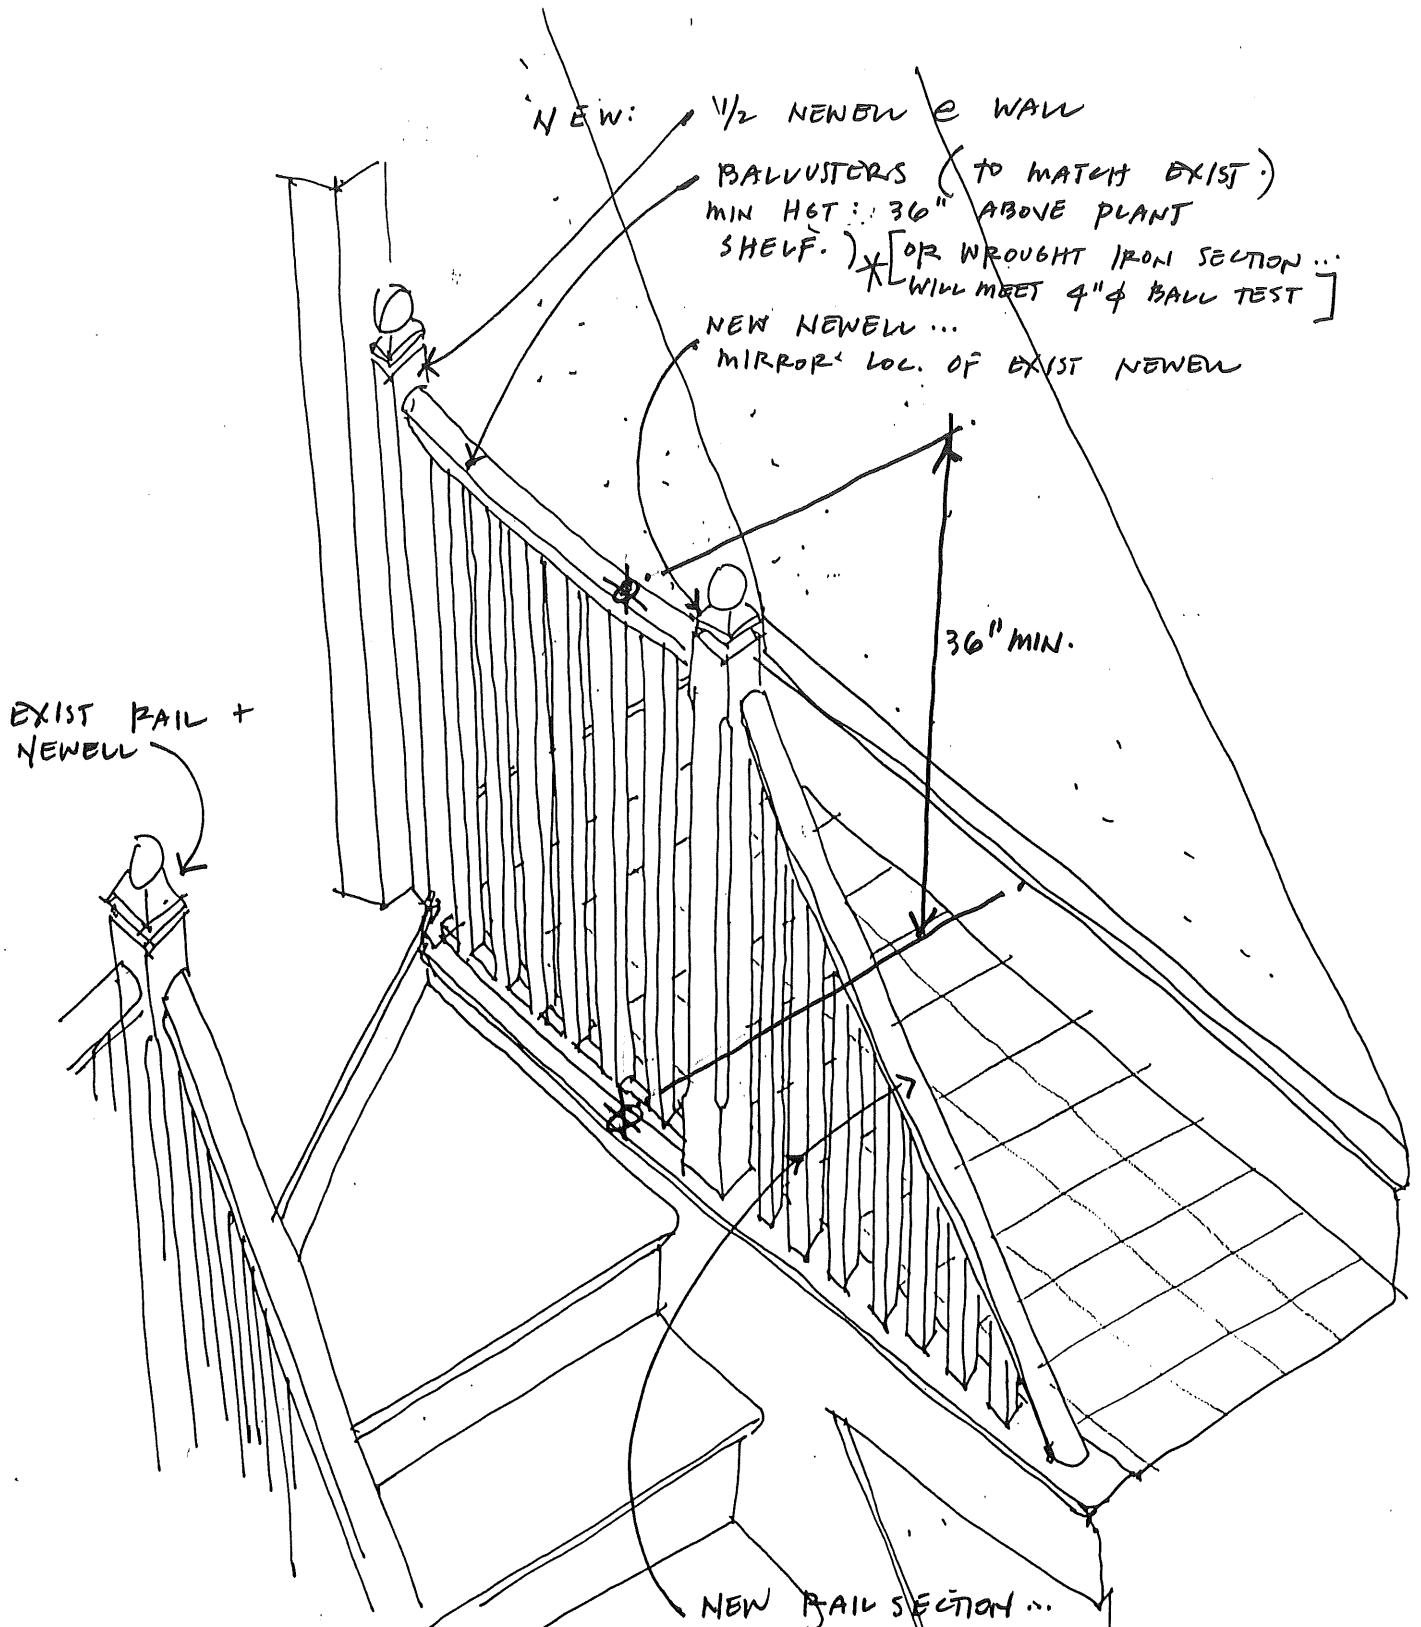 NEW: 1/2 NEWELL @ WALL
BALLUSTERS (TO MATCH EXIST.)
MIN HGT: 36" ABOVE PLANT
SHELF.) * [OR WROUGHT IRON SECTION...
WILL MEET 4"ϕ BALL TEST]
NEW NEWELL...
MIRROR LOC. OF EXIST NEWELL
36" MIN.
EXIST RAIL +
NEWELL
NEW RAIL SECTION...